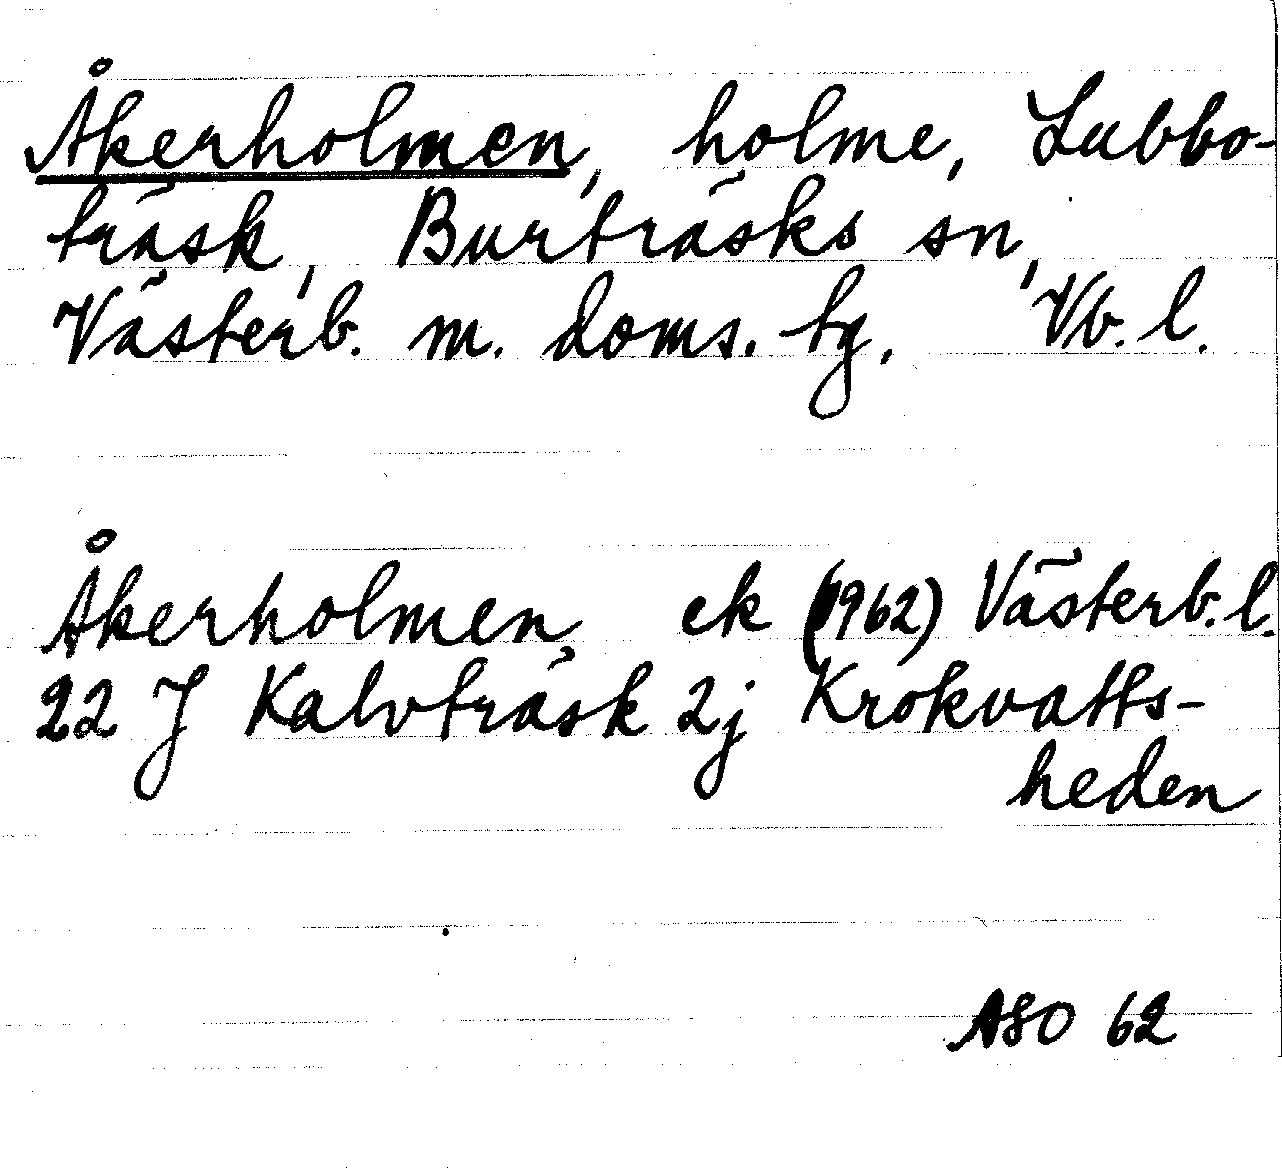 Åkerholmen, holme, Lubbo-
träsk, Burträsks sn,
Västerb. m. doms. tg, Vb. l.
Åkerholmen ek (1962) Västerb. l.
22 J Kalvträsk 2j Krokvatts-
heden
ASO 62